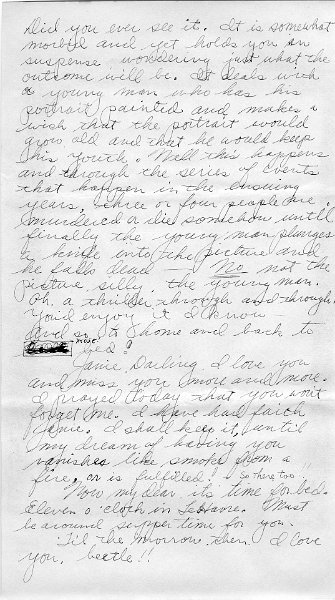 Did you ever see it. It is somewhat
morbid and yet holds you in
suspense wondering just what the
outcome will be. It deals with
a young man who has his
portrait painted and makes a
wish that the portrait would
grow old and that he would keep
his youth. Well this happens
and through the series of events
that happen in the ensuing
years, three or four people are
murdered or die somehow until
finally the young man plunges
a knife into the picture and
he falls dead — No not the
picture, silly, the young man.
Oh, a thriller through and through.
You'd enjoy it I know —
And so to home and back to
more
bed?
Janie Darling I love you
and miss you more and more.
I prayed today that you won't
forget me. I have had faith
Janie. I shall keep it, until
my dream of having you
vanishes like smoke from a
fire, or is fulfilled. So there too!
Now my dear it's time for bed.
Eleven o'cloth in LeHavre. Must
be around supper time for you.
'Til the morrow then I love
you, beetle!!